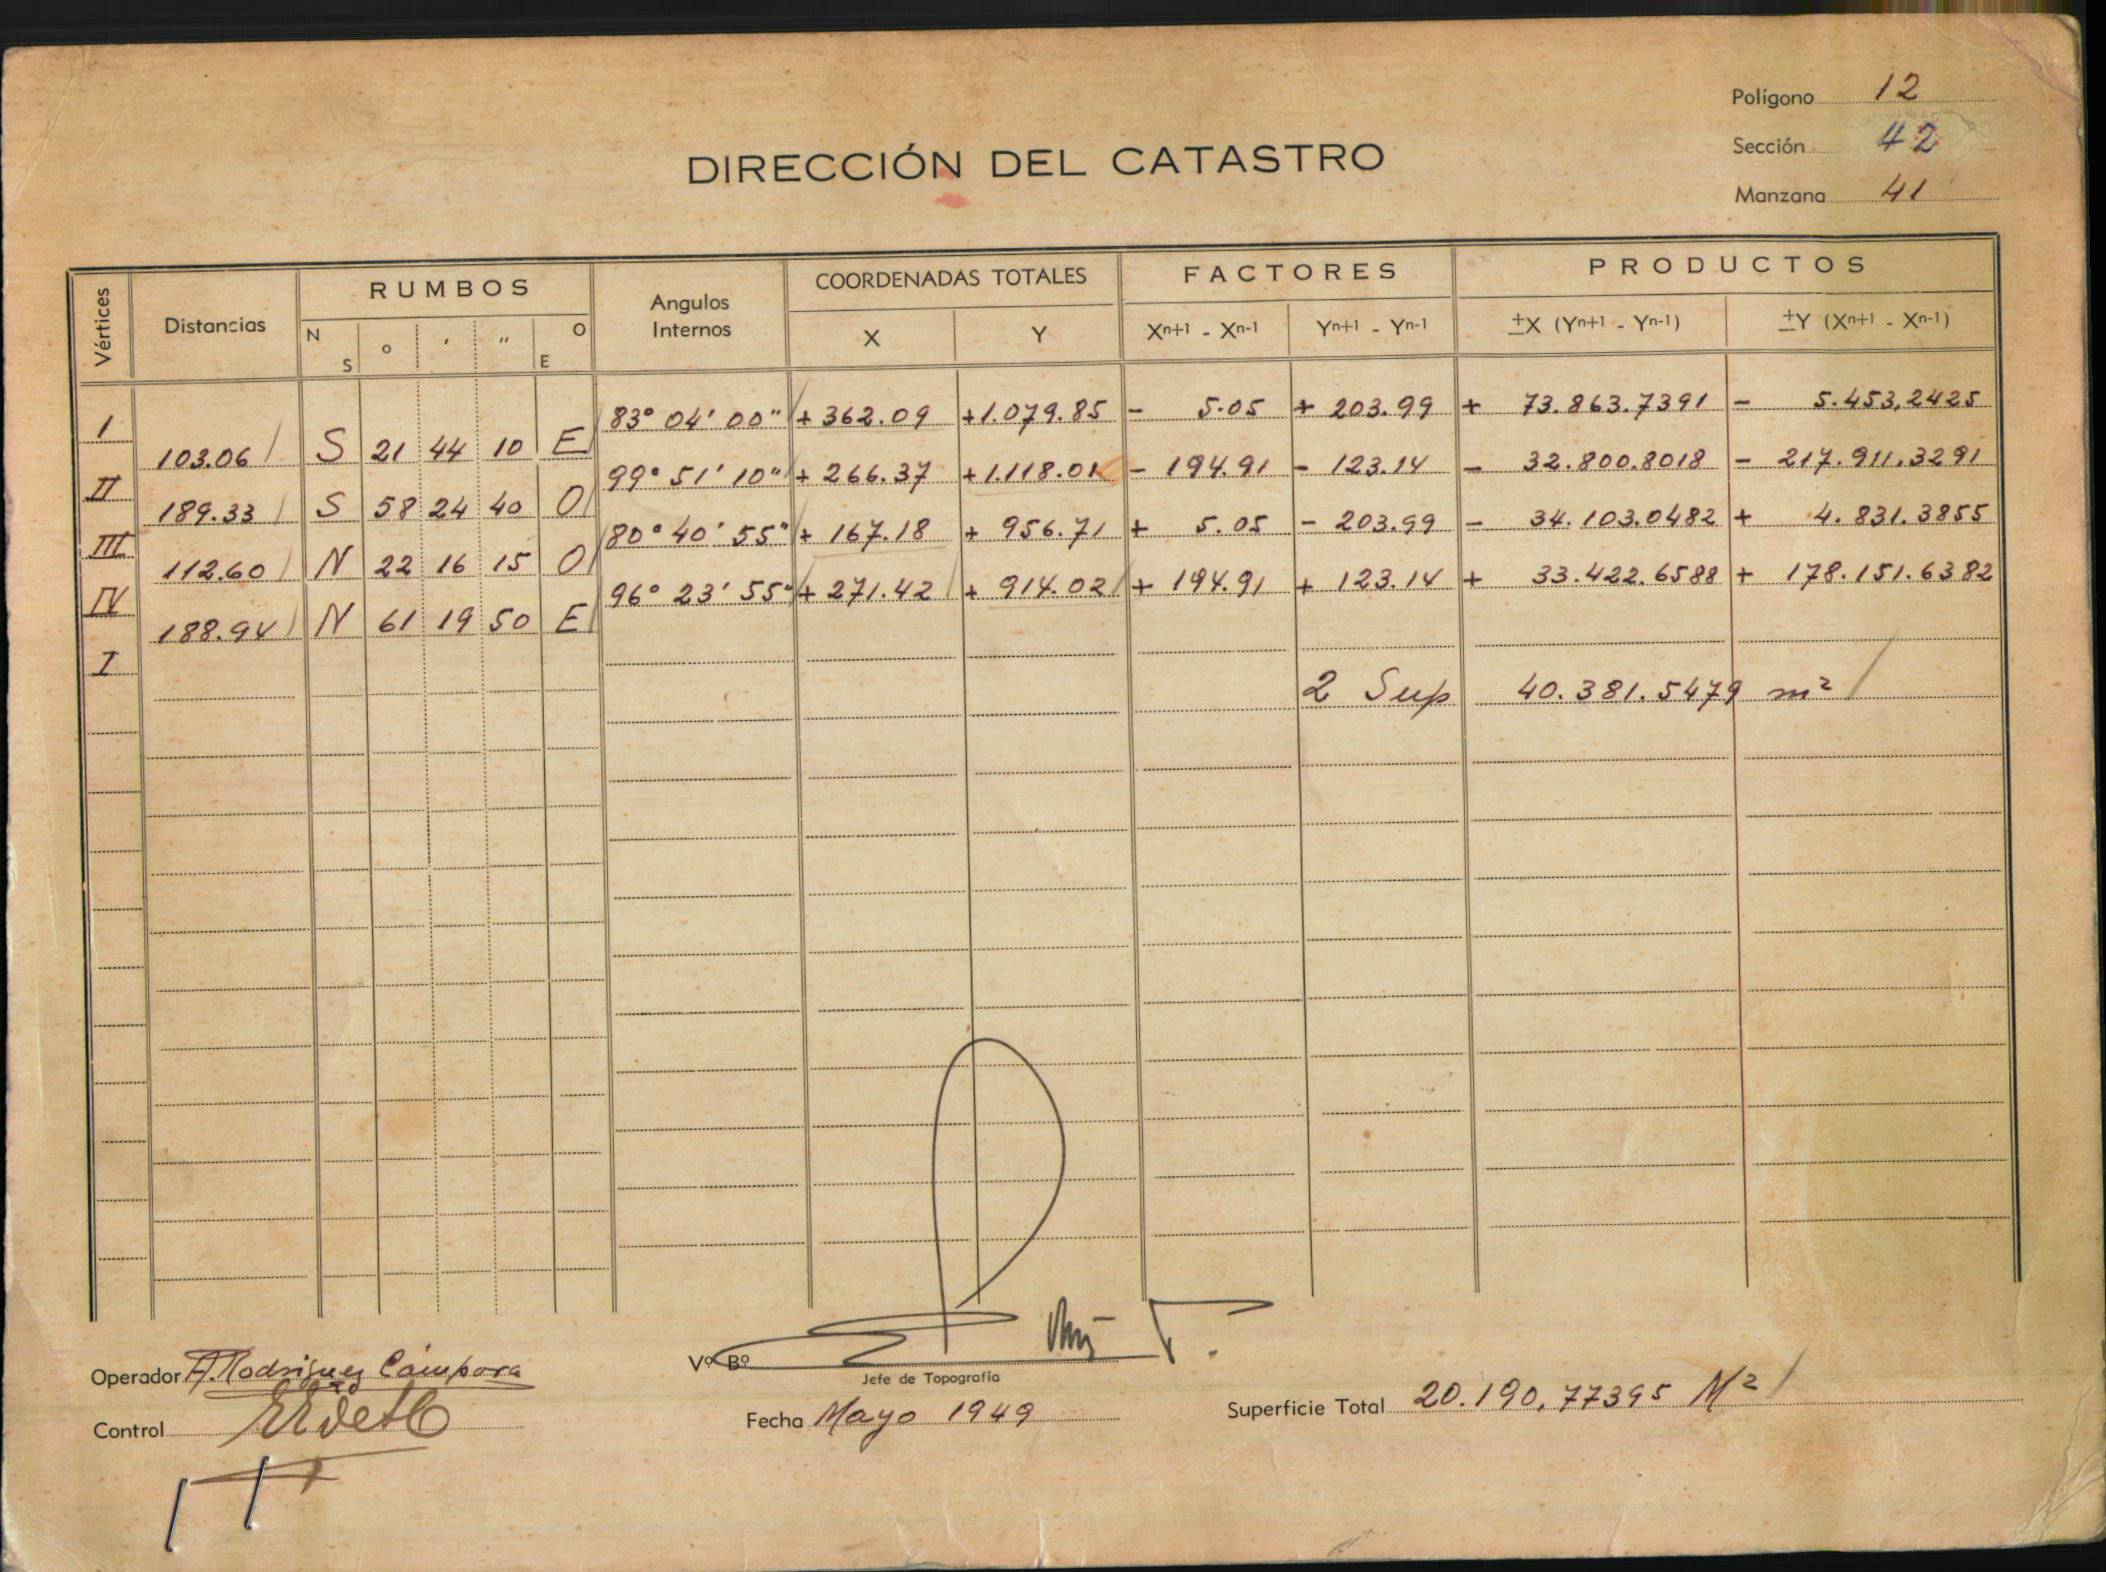 Polígono 12
Sección 42
Manzana 41
DIRECCIÓN DEL CATASTRO
Vértices Distancias RUMBOS Angulos Internos COORDENADAS TOTALES FACTORES PRODUCTOS
N S o ' " O E X Y Xn+1 - Xn-1 Yn+1 - Yn-1 ±X (Yn+1 - Yn-1) ±Y (Xn+1 - Xn-1)
I 83° 04' 00" + 362.09 +1.079.85 - 5.05 + 203.99 + 73.863.7391 - 5.453,2425
103.06 S 21 44 10 E
II 99° 51' 10" + 266.37 +1.118.01 - 194.91 - 123.14 - 32.800.8018 - 217.911.3291
189.33 S 58 24 40 O
III 80° 40' 55" + 167.18 + 956.71 + 5.05 - 203.99 - 34.103.0482 + 4.831.3855
112.60 N 22 16 15 O
IV 96° 23' 55" + 271.42 + 914.02 + 194.91 + 123.14 + 33.422.6588 + 178.151.6382
188.94 N 61 19 50 E
I
2 Sup 40.381.5479 m²
Operador A. Rodriguez Cámpora
Control
Vº Bº
Jefe de Topografía
Fecha Mayo 1949
Superficie Total 20.190,77395 M²